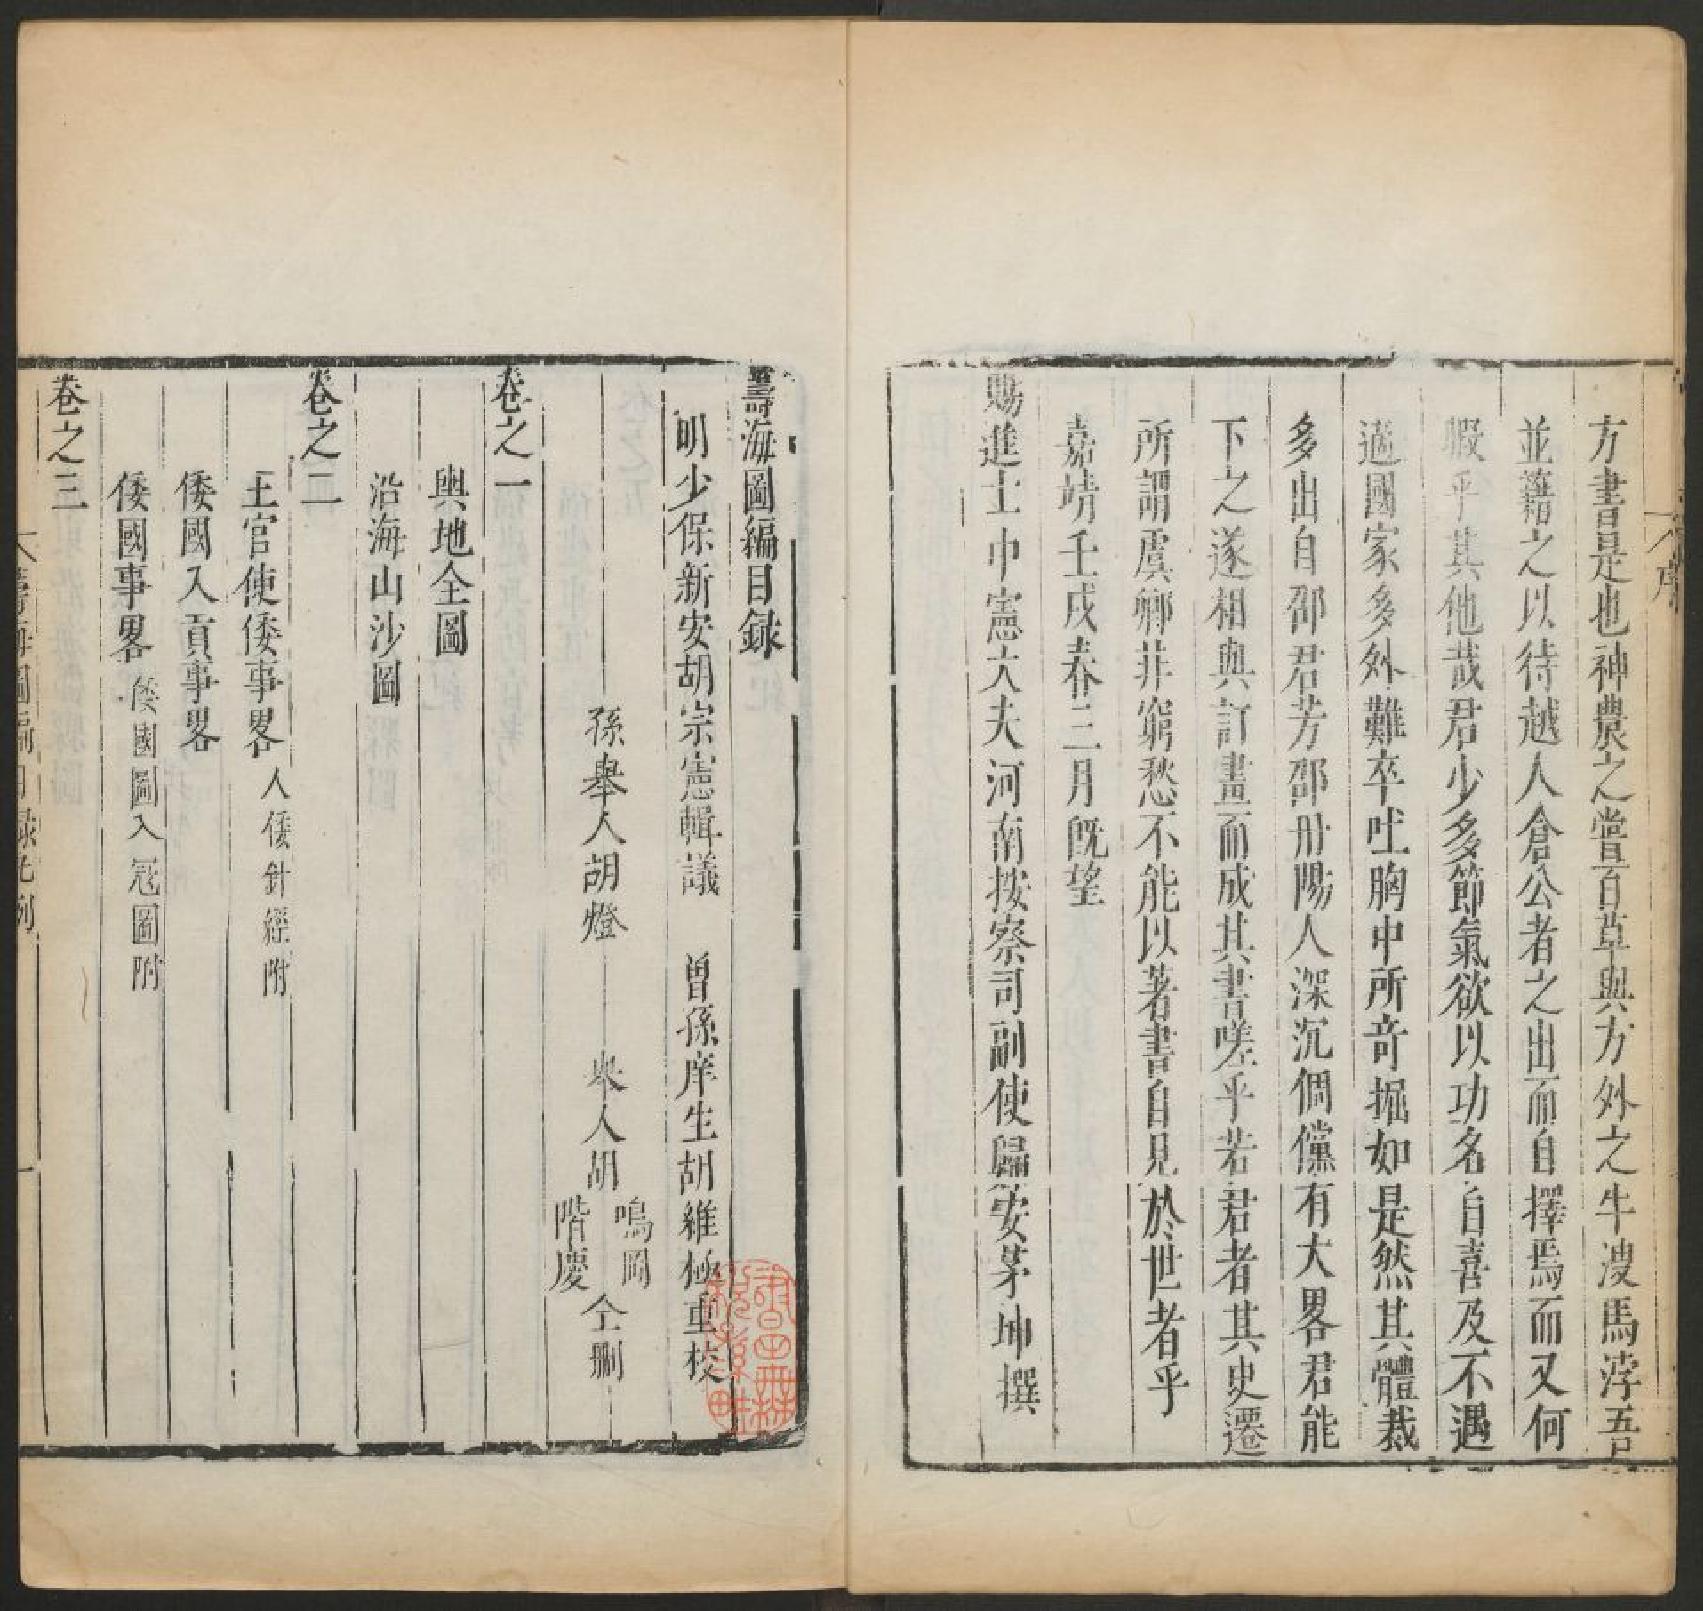 方書是也神農之嘗百草與方外之牛溲馬浡吾
並籍之以待越人倉公者之出而自擇焉而又何
暇乎其他哉君少多節氣欲以功名自喜及不遇
適國家多外難卒吐胸中所竒掘如是然其體裁
多出自邵君芳邵丹陽人深沉倜儻有大畧君能
下之遂相與訂畫而成其書嗟乎若君者其史遷
所謂虞卿非窮愁不能以著書自見於世者乎
嘉靖壬戌春三月旣望
賜進士中憲大夫河南按察司副使歸安茅坤撰
籌海圖編目録
明少保新安胡宗憲輯議 曾孫庠生胡維極重校
孫舉人胡燈
舉人胡
鳴岡
階慶
仝刪
卷之一
輿地全圖
沿海山沙圖
卷之二
王官使倭事畧 入倭針經附
倭國入貢事畧
倭國事畧 倭國圖入冦圖附
卷之三